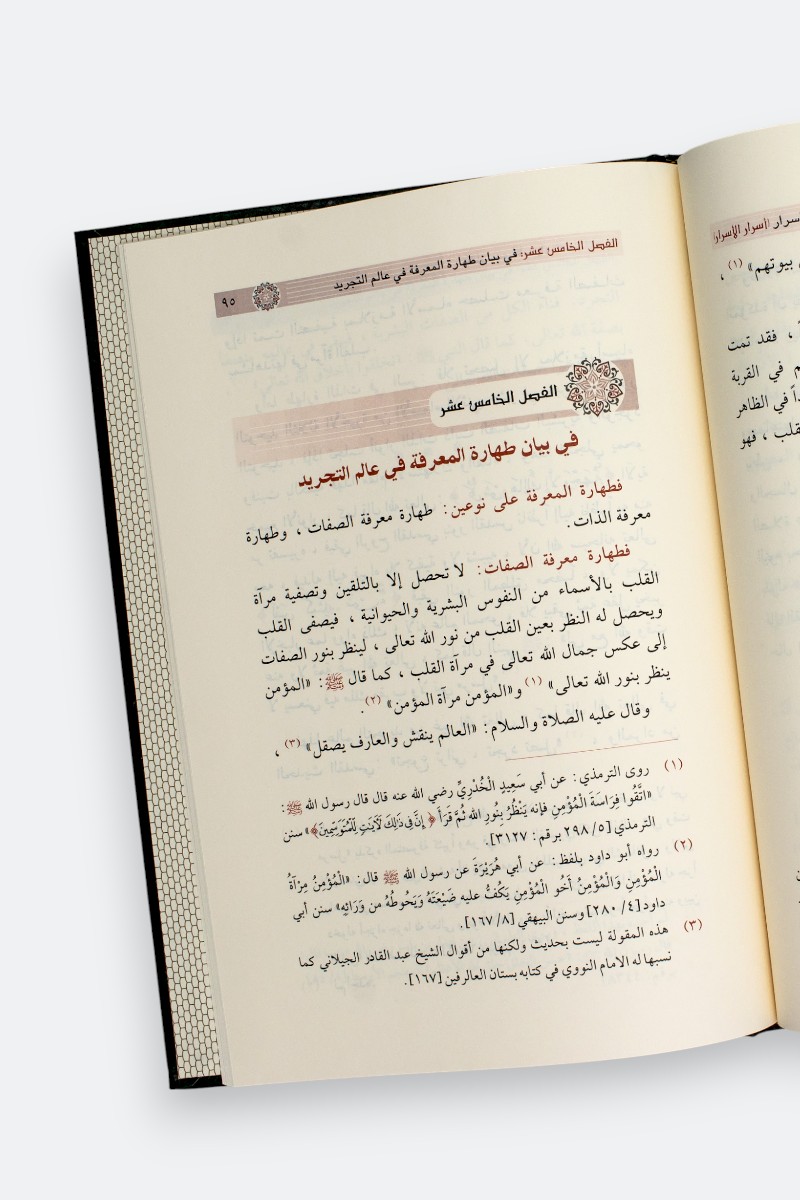 سرار (أسرار الإسرار)
بيوتهم» (١) ،
، فقد تمت
في القربة
في الظاهر
، فهو
الفصل الخامس عشر: في بيان طهارة المعرفة في عالم التجريد
٩٥
الفصل الخامس عشر
في بيان طهارة المعرفة في عالم التجريد
فطهارة المعرفة على نوعين: طهارة معرفة الصفات ، وطهارة
معرفة الذات.
فطهارة معرفة الصفات: لا تحصل إلا بالتلقين وتصفية مرآة
القلب بالأسماء من النفوس البشرية والحيوانية ، فيصفى القلب
ويحصل له النظر بعين القلب من نور الله تعالى ، لينظر بنور الصفات
إلى عكس جمال الله تعالى في مرآة القلب ، كما قال ﷺ: «المؤمن
ينظر بنور الله تعالى» (١) و«المؤمن مرآة المؤمن» (٢).
وقال عليه الصلاة والسلام: «العالم ينقش والعارف يصقل» (٣) ،
(١) روى الترمذي: عن أبي سَعِيدٍ الْخُدْرِيِّ رضي الله عنه قال قال رسول الله ﷺ:
«اتَّقُوا فِرَاسَةَ الْمُؤْمِنِ فإنه يَنْظُرُ بِنُورِ الله ثُمَّ قَرَأَ ﴿إِنَّ فِي ذَٰلِكَ لَآيَٰتٍ لِّلْمُتَوَسِّمِينَ﴾» سنن
الترمذي [٥/ ٢٩٨ برقم: ٣١٢٧].
(٢) رواه أبو داود بلفظ: عن أبي هُرَيْرَةَ عن رسول الله ﷺ قال: «الْمُؤْمِنُ مِرْآةُ
الْمُؤْمِنِ وَالْمُؤْمِنُ أَخُو الْمُؤْمِنِ يَكُفُّ عليه ضَيْعَتَهُ وَيَحُوطُهُ من وَرَائِهِ» سنن أبي
داود [٤/ ٢٨٠] وسنن البيهقي [٨/ ١٦٧].
(٣) هذه المقولة ليست بحديث ولكنها من أقوال الشيخ عبد القادر الجيلاني كما
نسبها له الامام النووي في كتابه بستان العالرفين [١٦٧].